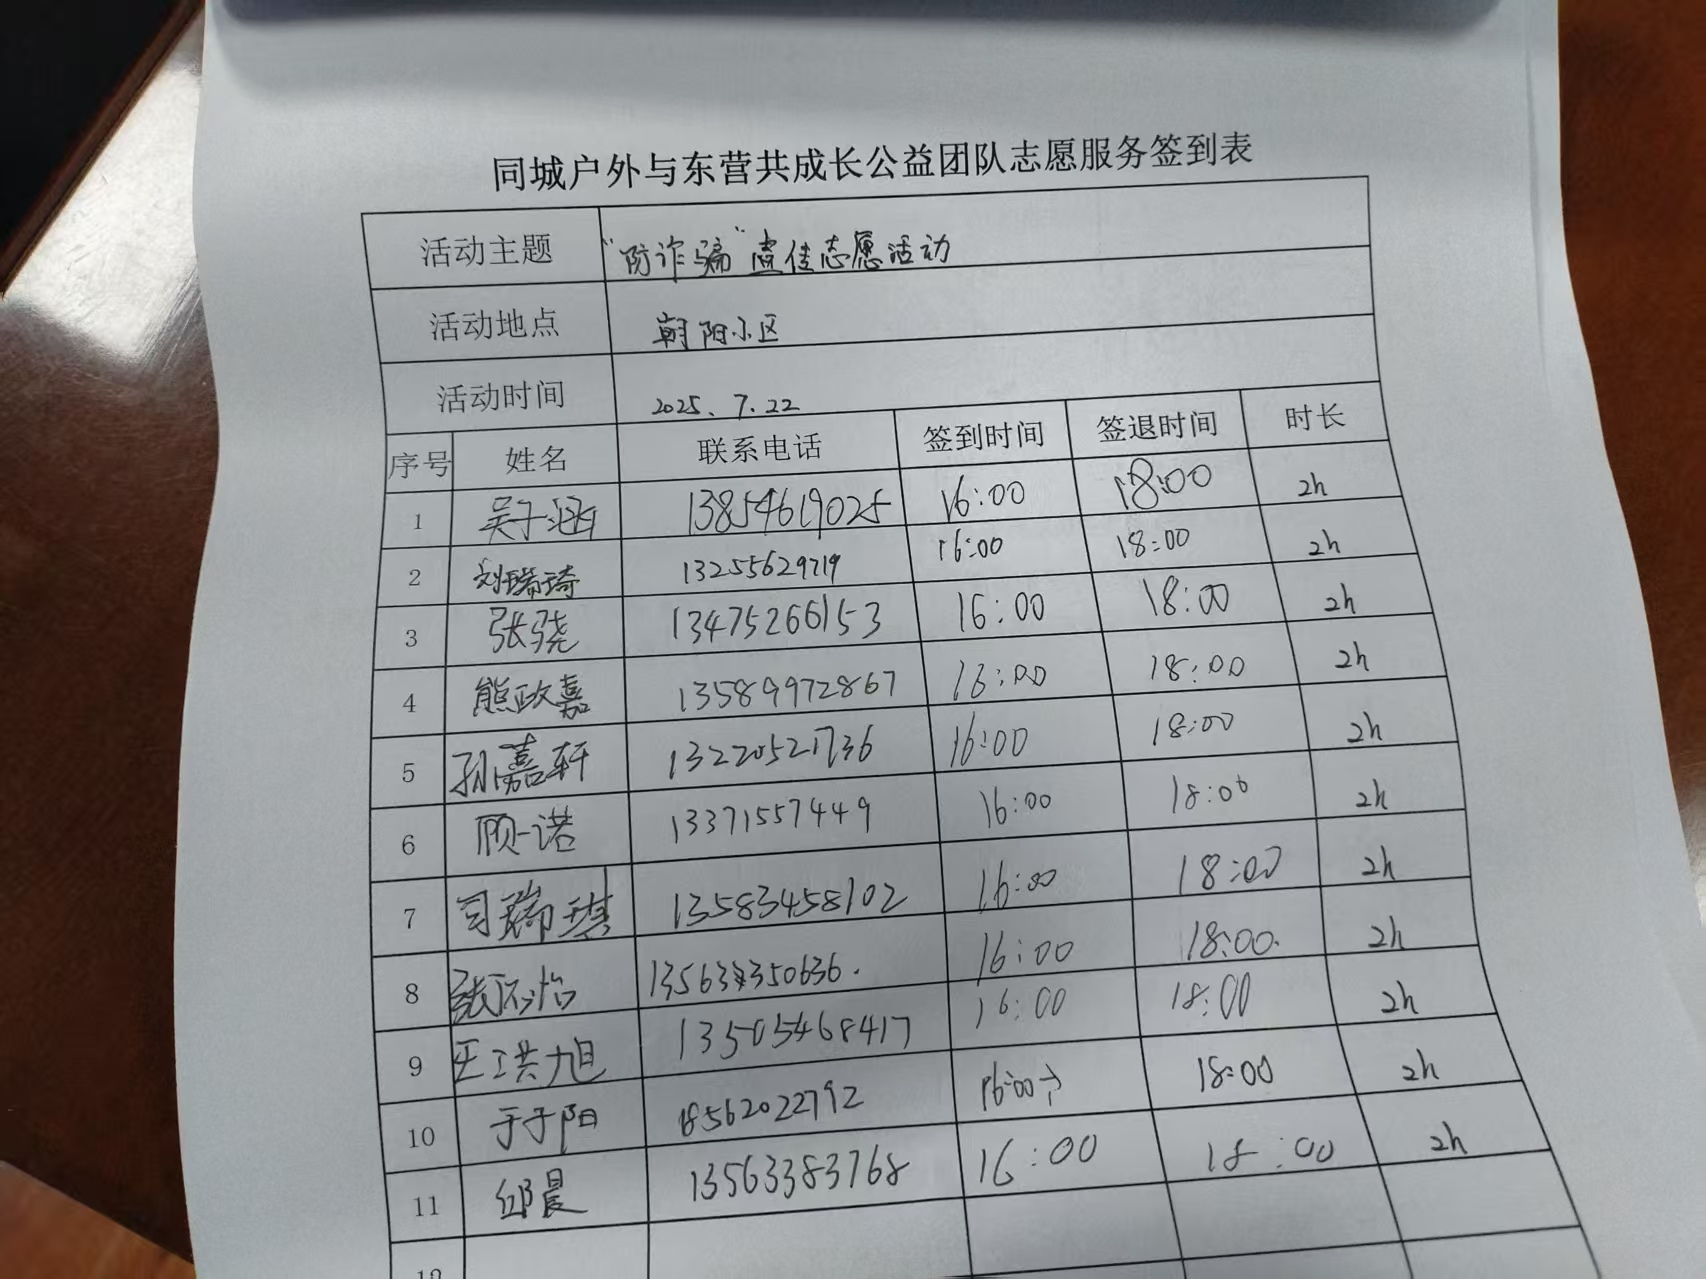 同城户外与东营共成长公益团队志愿服务签到表
活动主题 "防诈骗"宣传志愿活动
活动地点 朝阳小区
活动时间 2025.7.22
序号 姓名 联系电话 签到时间 签退时间 时长
1 吴于涵 13854619025 16:00 18:00 2h
2 刘瑞琦 13255629719 16:00 18:00 2h
3 张骁 13475266153 16:00 18:00 2h
4 熊政嘉 13589972867 16:00 18:00 2h
5 孙嘉轩 13220521736 16:00 18:00 2h
6 顾一诺 13371557449 16:00 18:00 2h
7 司瑞琪 13583458102 16:00 18:00 2h
8 16:00 18:00. 2h
9 王洪旭 13505468417 16:00 18:00 2h
10 于于阳 18562022792 16:00 18:00 2h
11 邱晨 13563383768 16:00 18:00 2h